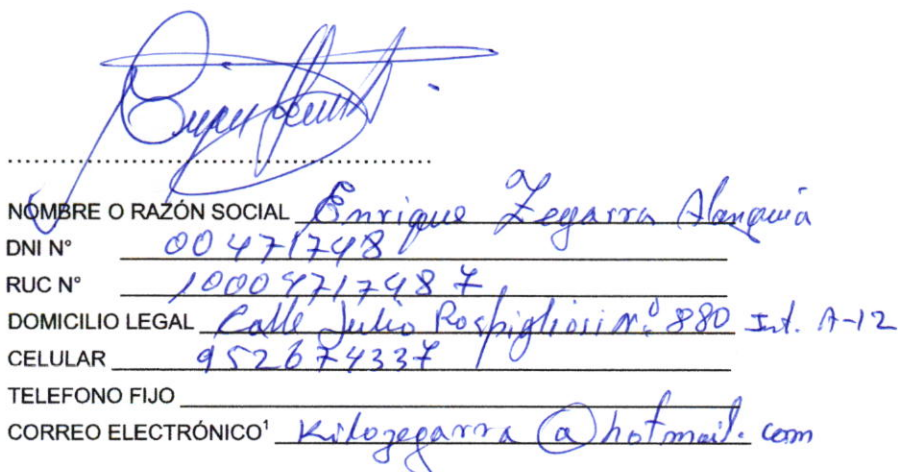 NOMBRE O RAZÓN SOCIAL Enrique Zegarra Alanguía
DNI N° 00471748
RUC N° 10004717487
DOMICILIO LEGAL Calle Julio Rospigliosi N° 880 Int. A-12
CELULAR 952674337
TELEFONO FIJO
CORREO ELECTRÓNICO¹ Kikozegarra@hotmail.com